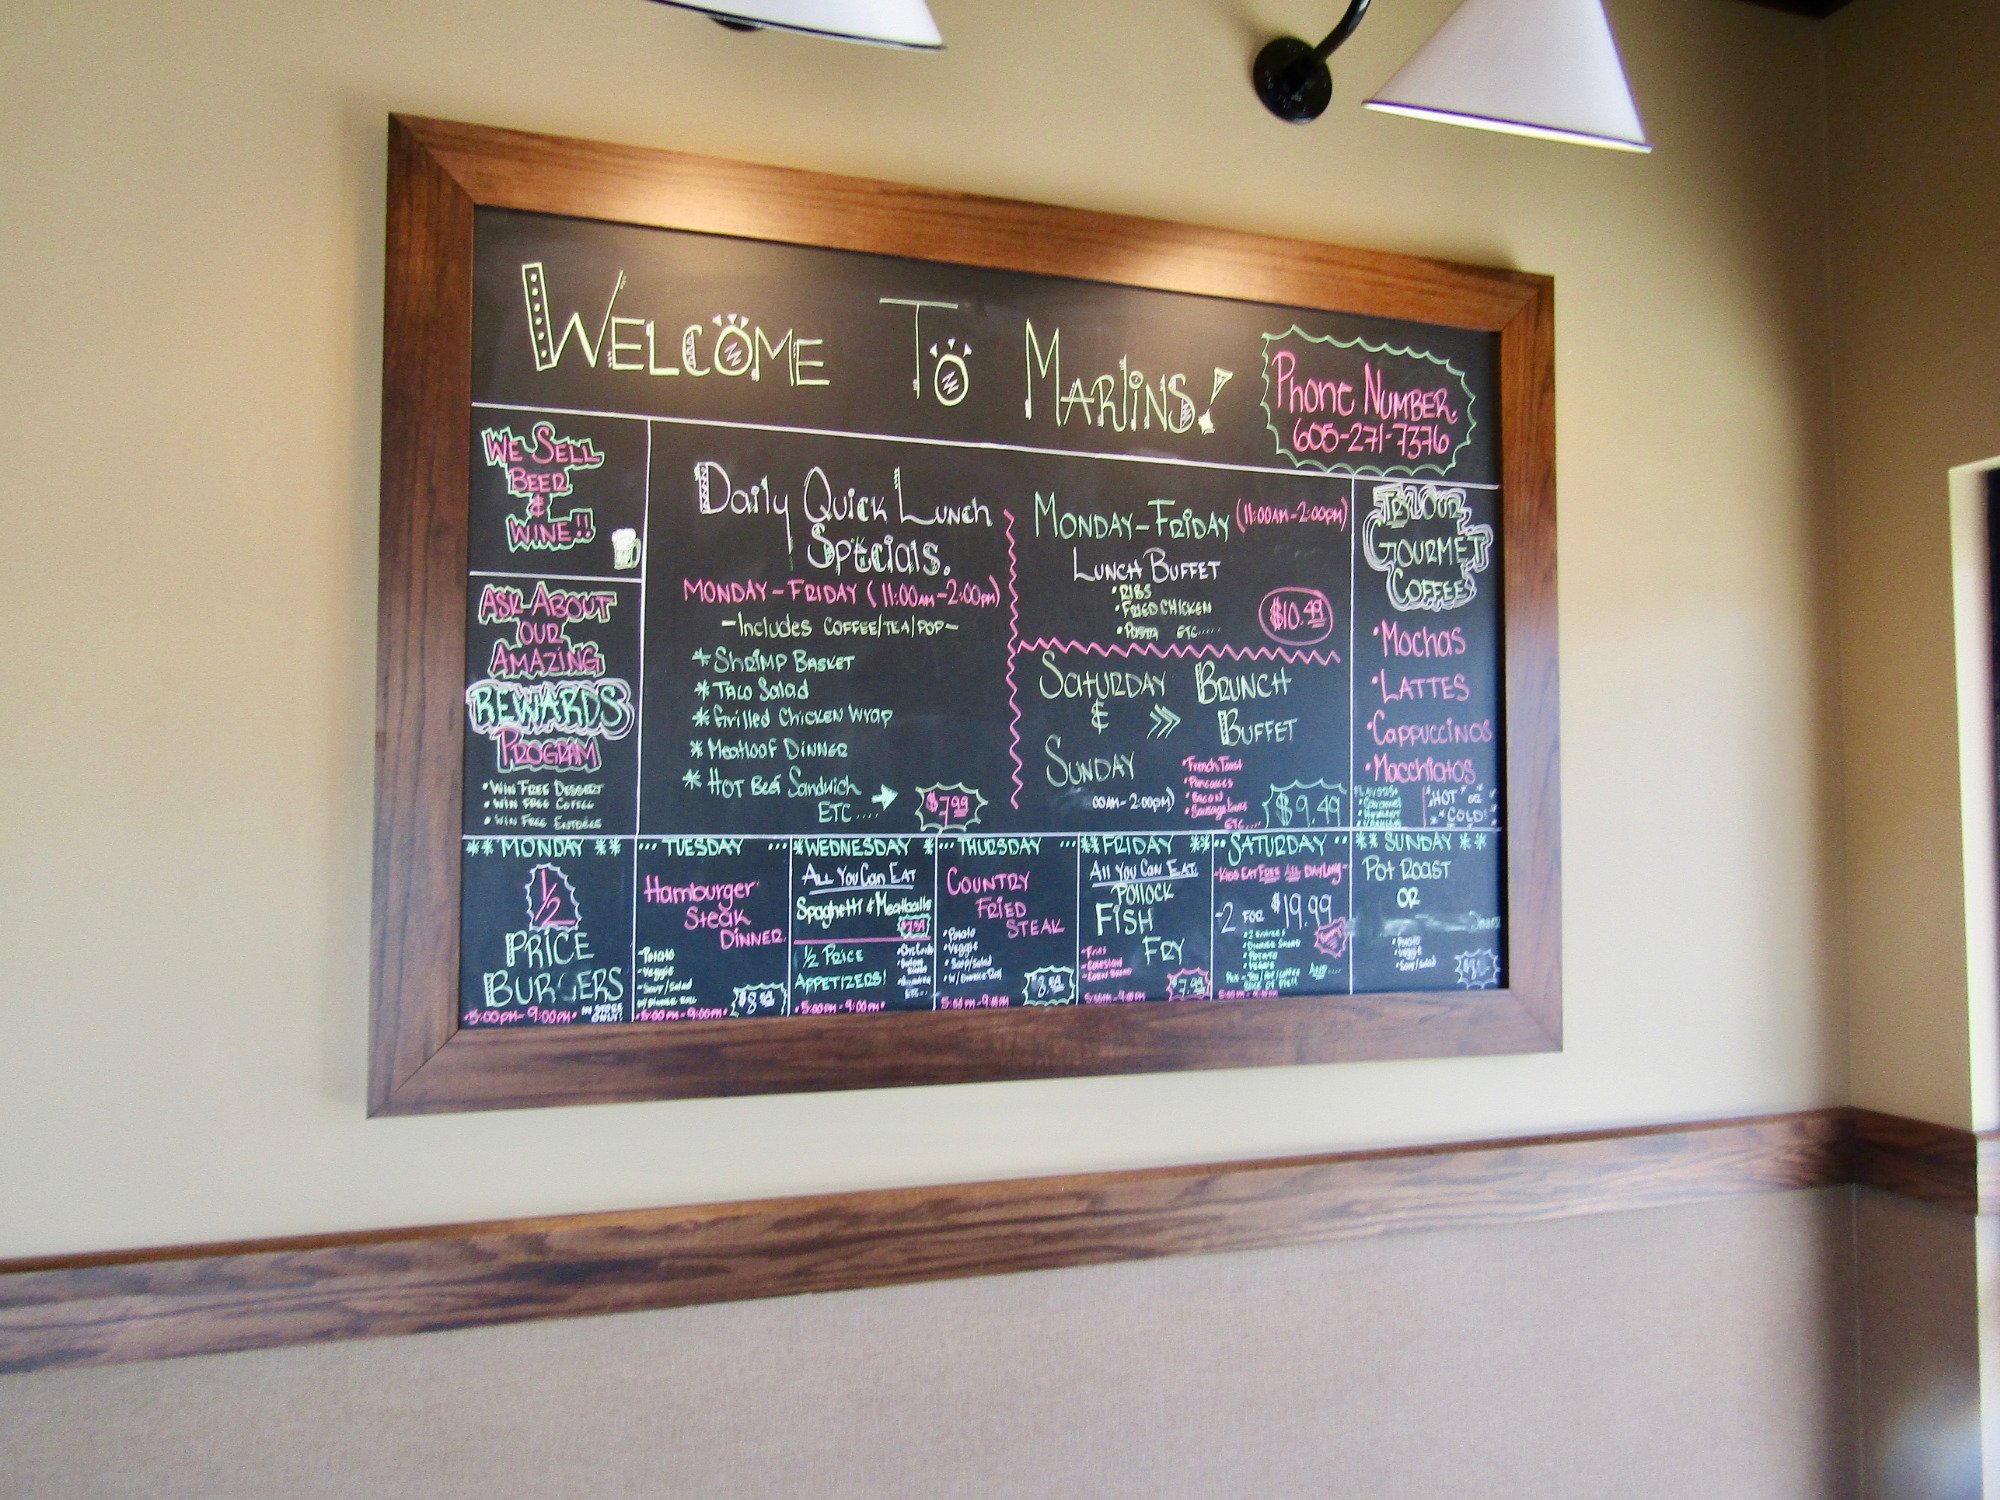 WELCOME TO MARLINS!
PHONE NUMBER
605-271-7376
WE SELL
BEER
&
WINE!!
ASK ABOUT
OUR
AMAZING
REWARDS
PROGRAM
• WIN FREE DESSERT
• WIN FREE COFFEE
• WIN FREE ENTRÉES
Daily Quick Lunch
Specials.
MONDAY-FRIDAY (11:00AM-2:00PM)
-Includes COFFEE/TEA/POP-
* SHRIMP BASKET
* TACO Salad
* Grilled CHICKEN WRAP
* MEATLOAF DINNER
* HOT BEEF SANDWICH
ETC....
$7.99
MONDAY-FRIDAY (11:00AM-2:00PM)
LUNCH BUFFET
• RIBS
• FRIED CHICKEN
• PASTA ETC.....
$10.49
SATURDAY BRUNCH
& >> BUFFET
SUNDAY
00AM-2:00PM)
• French Toast
• Pancakes
• BACON
• Sausage Links
ETC....
$9.49
TRY OUR
GOURMET
COFFEES
• MOCHAS
• LATTES
• CAPPUCCINOS
• Macchiatos
FLAVORS:
• Caramel
• HOT OR
COLD!
** MONDAY **
1/2
PRICE
BURGERS
• 5:00PM-9:00PM •
ONLY!
... TUESDAY ...
Hamburger
Steak
DINNER
- Potato
- Veggie
- Soup/Salad
W/DINNER ROLL
$8.59
• 5:00PM-9:00PM •
* WEDNESDAY *
ALL YOU CAN EAT
Spaghetti & Meatballs
1/2 PRICE
APPETIZERS!
ETC...
• 5:00PM-9:00PM •
... THURSDAY ...
COUNTRY
FRIED
STEAK
• Potato
• Veggie
• Soup/Salad
• W/DINNER Roll
5:00PM-9:00PM
** FRIDAY **
All YOU CAN EAT
POLLOCK
FISH
FRY
• Fries
• COLESLAW
- CORN BREAD
$7.99
5:00PM-9:00PM
.. SATURDAY ..
-KIDS EAT FREE ALL DAY LONG-
-2 FOR $19.99
• 2 ENTREES
• DINNER SALAD
• POTATO
• VEGGIE
** SUNDAY **
POT ROAST
OR
• Potato
• Veggie
• Soup/Salad